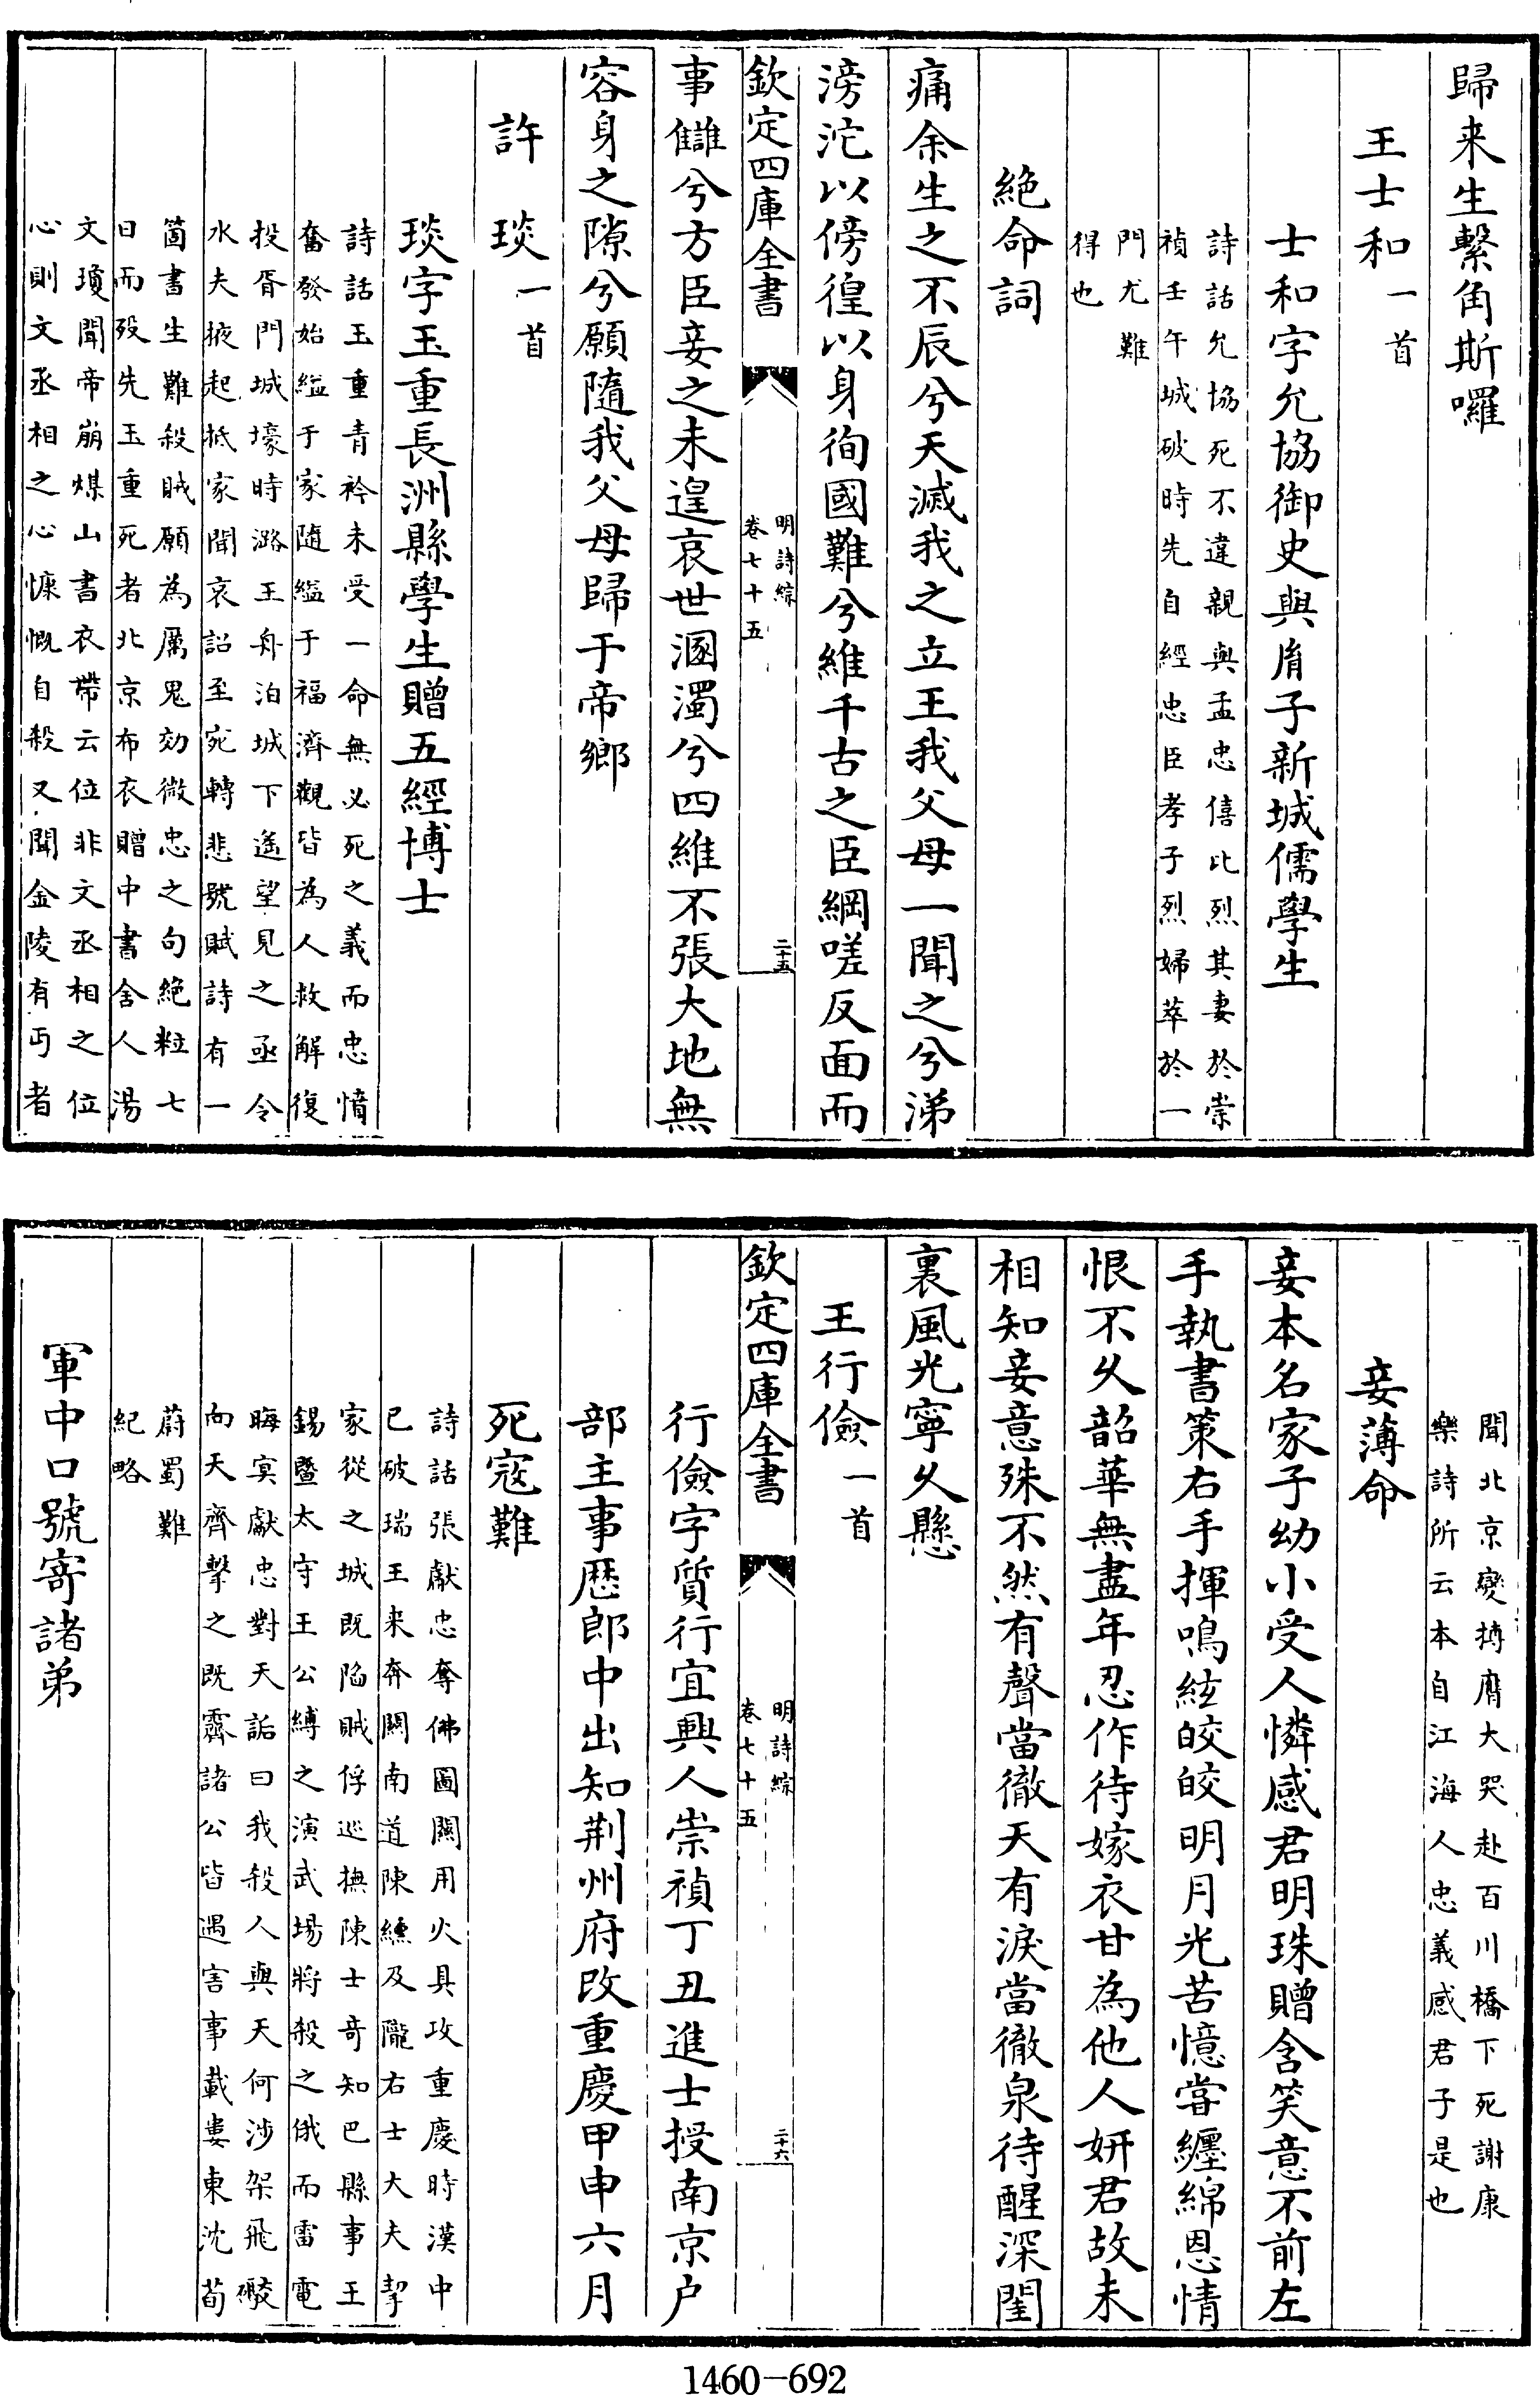 歸来生繫角斯囉
王士和一首
士和字允協御史與胤子新城儒學生
詩話允協死不違親與孟忠僖比烈其妻於崇
禎壬午城破時先自經忠臣孝子烈婦萃於一
門尤難
得也
絶命詞
痛余生之不辰兮天滅我之立王我父母一聞之兮涕
滂沱以傍徨以身徇國難兮維千古之臣綱嗟反面而
欽定四庫全書
明詩綜
卷七十五
二十五
事讎兮方臣妾之未遑哀世溷濁兮四維不張大地無
容身之隙兮願隨我父母歸于帝鄉
許琰一首
琰字玉重長洲縣學生贈五經博士
詩話玉重青衿未受一命無必死之義而忠憤
奮發始縊于家隨縊于福濟觀皆為人救解復
投胥門城壕時潞王舟泊城下遙望見之亟令
水夫掖起抵家聞哀詔至宛轉悲號賦詩有一
箇書生難殺賊願為厲鬼効微忠之句絶粒七
日而殁先玉重死者北京布衣贈中書舍人湯
文瓊聞帝崩煤山書衣帶云位非文丞相之位
心則文丞相之心慷慨自殺又聞金陵有丐者
聞北京變摶膺大哭赴百川橋下死謝康
樂詩所云本自江海人忠義感君子是也
妾薄命
妾本名家子幼小受人憐感君明珠贈含笑意不前左
手執書策右手揮鳴絃皎皎明月光苦憶甞纒綿恩情
恨不乆韶華無盡年忍作待嫁衣甘為他人妍君故未
相知妾意殊不然有聲當徹天有淚當徹泉待醒深閨
裏風光寧乆懸
王行儉一首
欽定四庫全書
明詩綜
卷七十五
二十六
行儉字質行宜興人崇禎丁丑進士授南京户
部主事歷郎中出知荆州府改重慶甲申六月
死寇難
詩話張獻忠奪佛圖關用火具攻重慶時漢中
已破瑞王来奔關南道陳纁及隴右士大夫挈
家從之城既陷賊俘巡撫陳士奇知巴縣事王
錫暨太守王公縛之演武場將殺之俄而雷電
晦冥獻忠對天詬曰我殺人與天何涉架飛礮
向天齊擊之既霽諸公皆遇害事載婁東沈荀
蔚蜀難
紀略
軍中口號寄諸弟
1460-692